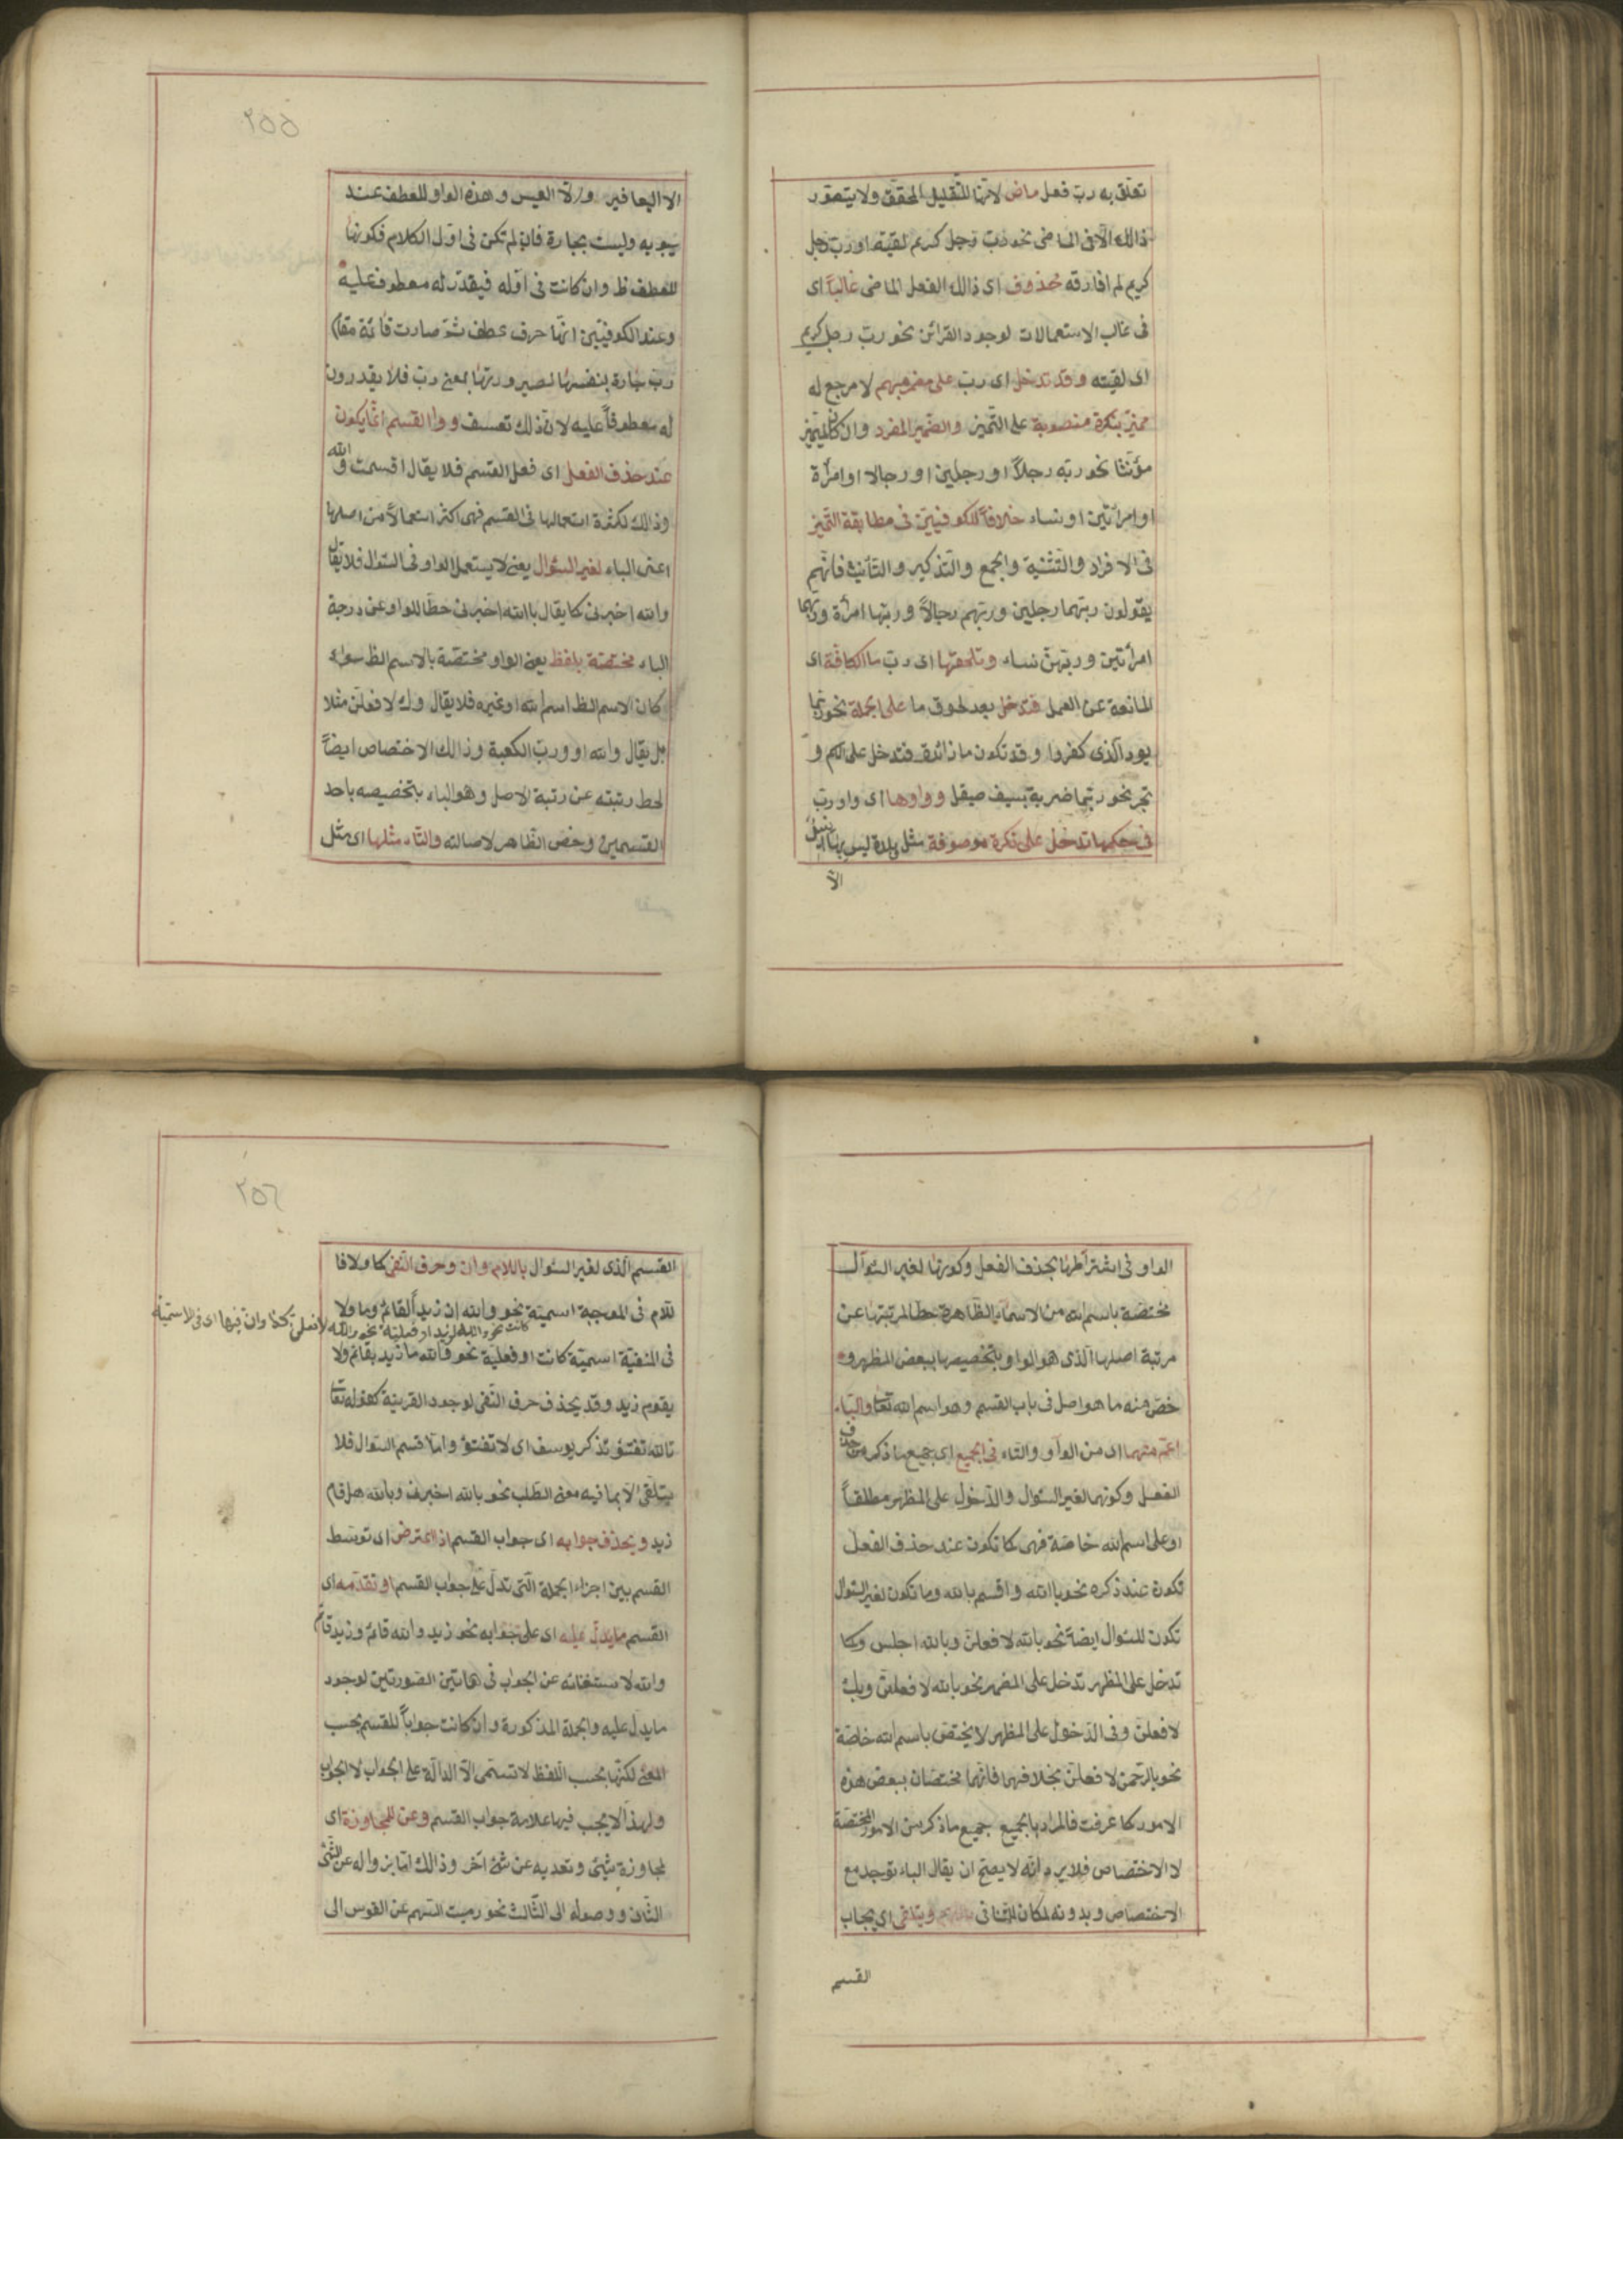 تعلق به رب فعل ماض لانها للتقليل المحقق ولا يتصور
ذالك الا فى الماضى نحو رب رجل كريم لقيته او رب رجل
كريم لم افارقه محذوف اى ذالك الفعل الماضى غالباً اى
فى غالب الاستعمالات لوجود القرائن نحو رب رجل كريم
اى لقيته وقد تدخل اى رب على مضمر مبهم لا مرجع له
مميز بنكرة منصوبة على التميز والضمير المفرد وان كان المميز
مؤنثا نحو ربه رجلاً او رجلين او رجالا او امرأة
او امرأتين او نساء خلافاً للكوفيين فى مطابقة التميز
فى الافراد والتثنية والجمع والتذكير والتأنيث فانهم
يقولون ربهما رجلين وربهم رجالاً وربها امرأة وربهما
امرأتين وربهن نساء وتلحقها اى رب ما الكافة اى
المانعة عن العمل فتدخل بعد لحوق ما على الجملة نحو ربما
يود الذى كفروا وقد تكون ما زائدة فتدخل على الاسم و
تجر نحو ربما ضربة بسيف صيقل وواوها اى واو رب
فى حكمها تدخل على نكرة موصوفة مثل وبلدة ليس بها انيس
الا
٢٥٥
الا اليعافير والا العيس وهذه الواو للعطف عند
سيبويه وليست بجارة فان لم تكن فى اول الكلام فكونها
للعطف ظ وان كانت فى اوله فيقدر له معطوف عليه
وعند الكوفيين انها حرف عطف ثم صارت قائمة مقام
رب جارة بنفسها لصيرورتها بمعنى رب فلا يقدرون
له معطوفاً عليه لان ذلك تعسف وواو القسم انما يكون
عند حذف الفعل اى فعل القسم فلا يقال اقسمت والله
وذالك لكثرة استعمالها فى القسم فهى اكثر استعمالاً من اصلها
اعنى الباء لغير السئوال يعنى لا يستعمل الواو فى السئوال فلا يقال
والله اخبرنى كما يقال بالله اخبرنى حطاً للواو عن درجة
الباء مختصة بلفظ يعنى الواو مختصة بالاسم الظ سواء
كان الاسم الظ اسم الله او غيره فلا يقال وك لافعلن مثلا
بل يقال والله او ورب الكعبة وذالك الاختصاص ايضاً
لحط رتبته عن رتبة الاصل وهو الباء بتخصيصه باحد
القسمين وخص الظاهر لاصالته والتاء مثلها اى مثل
الواو فى اشتراطها بحذف الفعل وكونها لغير السئوال
مختصة باسم الله من الاسماء الظاهرة حطا لمرتبتها عن
مرتبة اصلها الذى هو الواو بتخصيصها ببعض المظهر و
خص منه ما هو اصل فى باب القسم وهو اسم الله تعا والباء
اعم منهما اى من الواو والتاء فى الجميع اى جميع ما ذكر من حذف
الفعل وكونهما لغير السئوال والدخول على المظهر مطلقاً
او على اسم الله خاصة فهى كما تكون عند حذف الفعل
تكون عند ذكره نحو بالله واقسم بالله وكما تكون لغير السئوال
تكون للسئوال ايضاً نحو بالله لافعلن وبالله اجلس وكما
تدخل على المظهر تدخل على المضمر نحو بالله لافعلن وبك
لافعلن وفى الدخول على المظهر لا يختص باسم الله خاصة
نحو بالرحمن لافعلن بخلافهما فانهما مختصان ببعض هذه
الامور كما عرفت فالمراد بالجميع جميع ما ذكر من الامور المختصة
لا الاختصاص فلا يرد انه لا يصح ان يقال الباء توجد مع
الاختصاص وبدونه لمكان التنافى ويتلقى اى يجاب
القسم
٢٥٦
القسم الذى لغير السئوال باللام وان وحرف النفى كما ولا فا
للام فى الموجبة اسمية نحو والله ان زيداً لقائم وما ولا
كانت نحو والله لزيد او فعلية نحو والله لافعلن كذا وان فيها اى فى الاسمية
فى المنفية اسمية كانت او فعلية نحو والله ما زيد بقائم ولا
يقوم زيد وقد يحذف حرف النفى لوجود القرينة كقوله تعا
تالله تفتؤ تذكر يوسف اى لا تفتؤ واما قسم السئوال فلا
يتلقى الا بما فيه معنى الطلب نحو بالله اخبرنى وبالله هل قام
زيد ويحذف جوابه اى جواب القسم اذا اعترض اى توسط
القسم بين اجزاء الجملة التى تدل على جواب القسم او تقدمه اى
القسم ما يدل عليه اى على جوابه نحو زيد والله قائم وزيد قائم
والله لاستغنائه عن الجواب فى هاتين الصورتين لوجود
ما يدل عليه والجملة المذكورة وان كانت جواباً للقسم بحسب
المعنى لكنها بحسب اللفظ لا تسمى الا الدالة على الجواب لا الجواب
ولهذا لا يجب فيها علامة جواب القسم وعن للمجاوزة اى
لمجاوزة شئ وتعديه عن شئ آخر وذالك اما بزواله عن الشئ
الثانى ووصوله الى الثالث نحو رميت السهم عن القوس الى